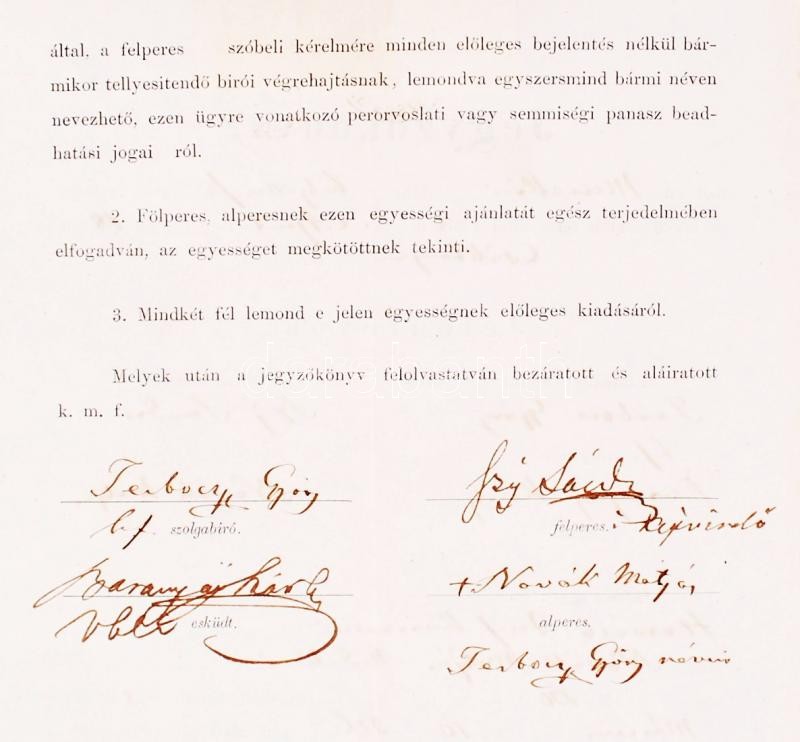 által, a felperes szóbeli kérelmére minden előleges bejelentés nélkül bár-
mikor tellyesitendő birói végrehajtásnak, lemondva egyszersmind bármi néven
nevezhető, ezen ügyre vonatkozó perorvoslati vagy semmiségi panasz bead-
hatási jogai ról.
2. Fölperes, alperesnek ezen egyességi ajánlatát egész terjedelmében
elfogadván, az egyességet megkötöttnek tekinti.
3. Mindkét fél lemond e jelen egyességnek előleges kiadásáról.
Melyek után a jegyzőkönyv felolvastatván bezáratott és aláiratott
k. m. f.
Terboczy György
szolgabíró.
felperes. képviselő
Baranyay Károly
esküdt.
+ Novák Mátyás
alperes.
Terboczy György névíró
darabanth